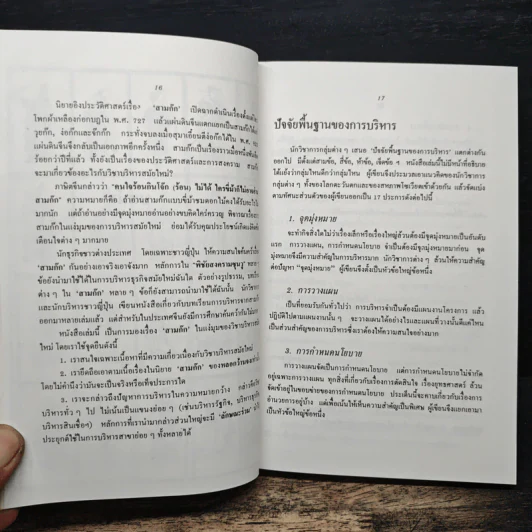 16
นิยายอิงประวัติศาสตร์เรื่อง 'สามก๊ก' เปิดฉากดำเนินเรื่องตั้งแต่
โพกผ้าเหลืองก่อกบฏใน พ.ศ. 727 แล้วแผ่นดินจีนแตกแยกเป็นสามก๊ก
วุยก๊ก, ง่อก๊กและจ๊กก๊ก กระทั่งจบลงเมื่อสุมาเอี๋ยนตีง่อก๊กได้ใน พ.ศ.
แผ่นดินจีนจึงกลับเป็นเอกภาพอีกครั้งหนึ่ง สามก๊กเป็นเรื่องราวเมื่อพันกว่า
ร้อยกว่าปีที่แล้ว ทั้งยังเป็นเรื่องของประวัติศาสตร์และการสงคราม สามก๊ก
จะมาเกี่ยวข้องอะไรกับวิชาบริหารสมัยใหม่?
ภาษิตจีนกล่าวว่า 'คนใจร้อนกินโจ๊ก (ร้อน) ไม่ได้ ใครขี้ขลาดไม่
ความหมายก็คือ ถ้าอ่านสามก๊กแบบขี่ม้าชมดอกไม้คงได้รับ
มากนัก แต่ถ้าอ่านอย่างมีจุดมุ่งหมายอ่านอย่างขบคิดใคร่ครวญ พิจารณา
สามก๊กในแง่มุมของการบริหารสมัยใหม่ ย่อมได้รับคุณประโยชน์คติ
เตือนใจต่าง ๆ มากมาย
นักธุรกิจชาวต่างประเทศ โดยเฉพาะชาวญี่ปุ่น ให้ความสนใจค้นคว้า
'สามก๊ก' กันอย่างเอาจริงเอาจังมาก หลักการใน 'พิชัยสงครามซุนวู'
ข้อยังนำมาใช้ได้ในการบริหารธุรกิจสมัยใหม่ฉันใด ตัวอย่างรูปธรรม
ต่าง ๆ ใน 'สามก๊ก' หลาย ๆ ข้อก็ยังสามารถนำมาใช้ได้ฉันนั้น นักวิชาการ
และนักบริหารชาวญี่ปุ่น เขียนหนังสือเกี่ยวกับบทเรียนการบริหารจาก
ออกมาหลายเล่มแล้ว แต่สำหรับในประเทศจีนยังมีการศึกษาค้นคว้ากันไม่มาก
หนังสือเล่มนี้ เป็นการมองเรื่อง 'สามก๊ก' ในแง่มุมของวิชาบริหาร
ใหม่ โดยเราใช้จุดยืนดังนี้
1. เราสนใจเฉพาะเนื้อหาที่มีความเกี่ยวเนื่องกับวิชาบริหารสมัยใหม่
2. เรายึดถือเอาตามเนื้อเรื่องในนิยาย 'สามก๊ก' ของหลอกว้านจง
โดยไม่คำนึงว่ามันจะเป็นจริงหรือเท็จประการใด
3. เราจะกล่าวถึงปัญหาการบริหารในความหมายกว้าง กล่าวคือ
บริหารทั่ว ๆ ไป ไม่เน้นเป็นแขนงย่อย ๆ (เช่นบริหารรัฐกิจ, บริหารธุรกิจ
บริหารสินเชื่อฯ) หลักการที่เรานำมากล่าวส่วนใหญ่จะมี 'ลักษณะร่วม'
ประยุกต์ใช้ในการบริหารสาขาย่อย ๆ ทั้งหลายได้
17
ปัจจัยพื้นฐานของการบริหาร
นักวิชาการกลุ่มต่าง ๆ เสนอ 'ปัจจัยพื้นฐานของการบริหาร' แตกต่างกัน
ออกไป มีตั้งแต่สามข้อ, สี่ข้อ, ห้าข้อ, เจ็ดข้อ ฯ หนังสือเล่มนี้ไม่มีหน้าที่อธิบาย
โต้แย้งว่ากลุ่มไหนดีกว่ากลุ่มไหน ผู้เขียนจึงประมวลเอาแนวคิดของนักวิชาการ
กลุ่มต่าง ๆ ทั้งของโลกตะวันตกและของสหภาพโซเวียตเข้าด้วยกัน แล้วจัดแบ่ง
ตามทัศนะส่วนตัวของผู้เขียนออกเป็น 17 ประการดังต่อไปนี้
1. จุดมุ่งหมาย
จะทำกิจสิ่งใดไม่ว่าเรื่องเล็กหรือเรื่องใหญ่ล้วนต้องมีจุดมุ่งหมายเป็นอันดับ
แรก การวางแผน, การกำหนดนโยบาย จำเป็นต้องมีจุดมุ่งหมายมาก่อน จุดมุ่ง
หมายจึงมีความสำคัญในการบริหารมาก นักวิชาการต่าง ๆ ล้วนให้ความสำคัญ
ต่อปัญหา 'จุดมุ่งหมาย' ผู้เขียนจึงตั้งเป็นหัวข้อใหญ่ข้อหนึ่ง
2. การวางแผน
เป็นที่ยอมรับกันทั่วไปว่า การบริหารจำเป็นต้องมีแผนงานโครงการ แล้ว
ปฏิบัติไปตามแผนงานนั้น ๆ จะวางแผนได้อย่างไรและแผนที่วางนั้นดีแค่ไหน
เป็นส่วนสำคัญของการบริหารซึ่งเราต้องให้ความสนใจอย่างมาก
3. การกำหนดนโยบาย
การวางแผนต้องมีการกำหนดนโยบาย แต่การกำหนดนโยบายไม่จำกัด
อยู่เฉพาะการวางแผน ทุกสิ่งที่เกี่ยวกับการตัดสินใจ เรื่องยุทธศาสตร์ ล้วน
จัดเข้าอยู่ในขอบข่ายของการกำหนดนโยบาย ประเด็นนี้จะคาบเกี่ยวกับเรื่องการ
อำนวยการอยู่บ้าง แต่เพื่อเน้นให้เห็นความสำคัญเป็นพิเศษ ผู้เขียนจึงแยกเอามา
เป็นหัวข้อใหญ่ข้อหนึ่ง